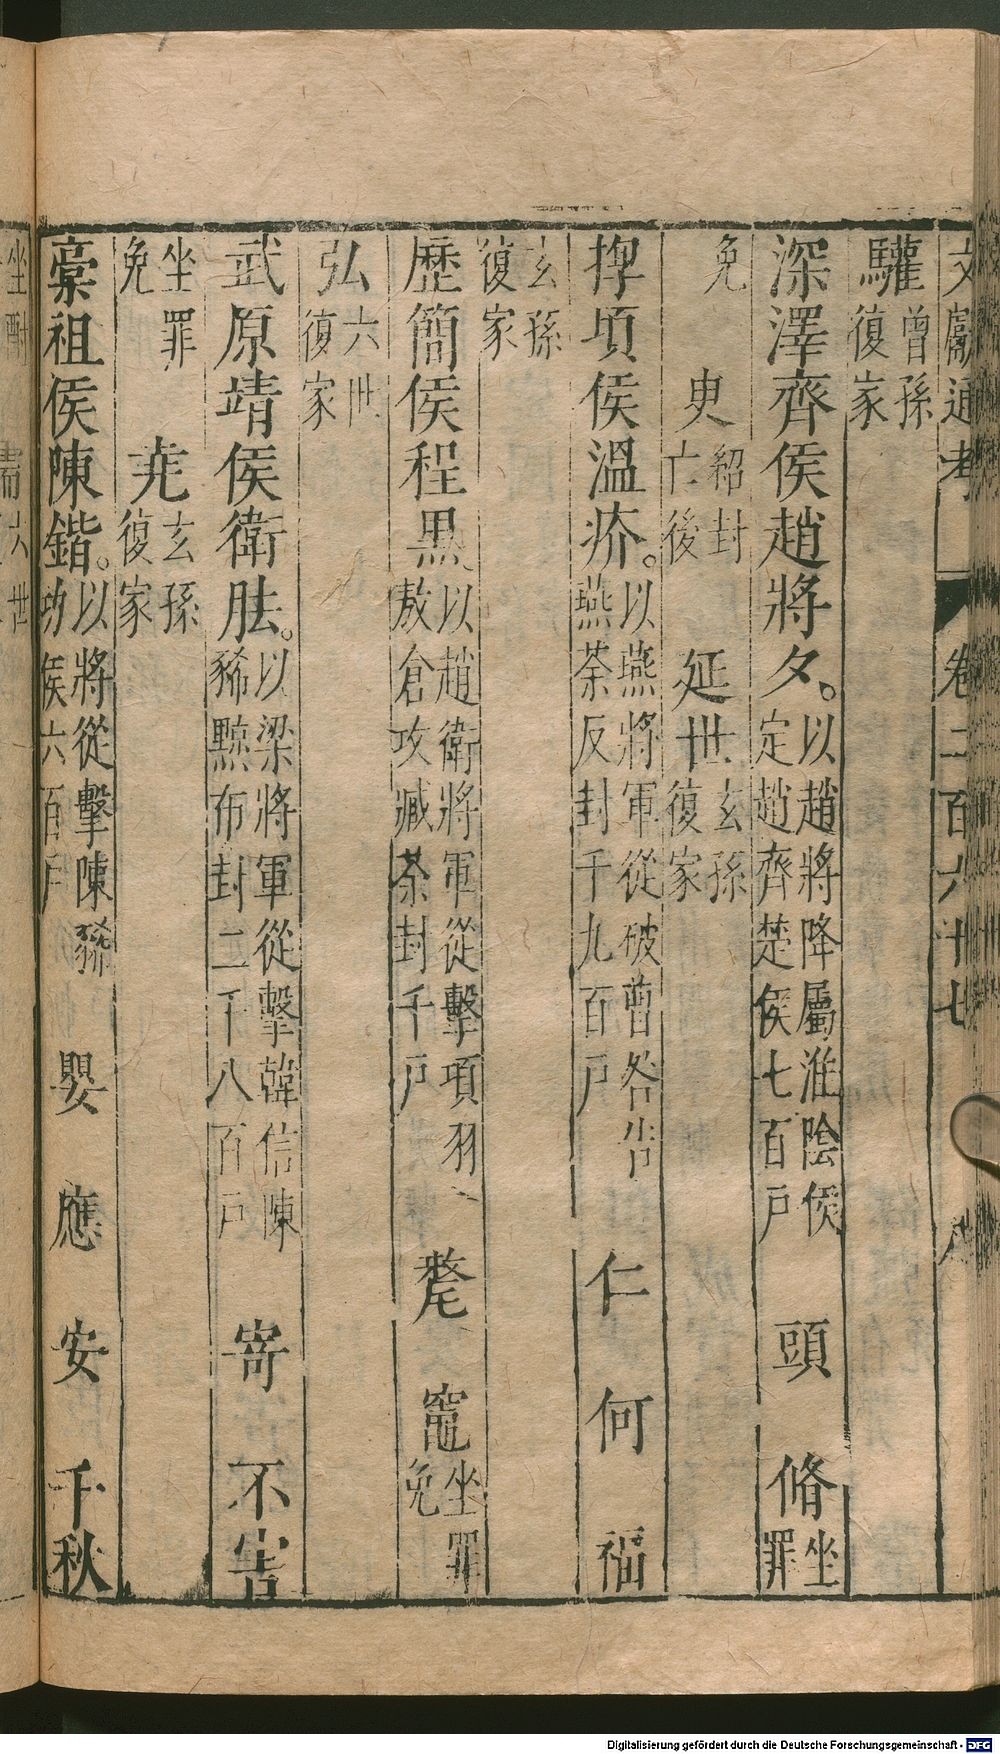 文獻通考 卷二百六十七
驩曾孫復家
深澤齊侯趙將夕。以趙將降屬淮陰侯定趙齊楚侯七百戶 頭 脩坐罪
免 㬰紹封亡後 延世玄孫復家
捍頃侯溫疥。以燕將軍從破曹咎告燕荼反封千九百戶 仁 何 福
玄孫復家
歷簡侯程黑以趙衛將軍從擊項羽敖倉攻臧荼封千戶 氂 竈坐罪免
弘六世復家
武原靖侯衛胠。以梁將軍從擊韓信陳豨黥布封二千八百戶 寄 不害
坐罪免 堯玄孫復家
槀祖侯陳鍇。以將從擊陳豨功侯六百戶 嬰 應 安 千秋
Digitalisierung gefördert durch die Deutsche Forschungsgemeinschaft - DFG